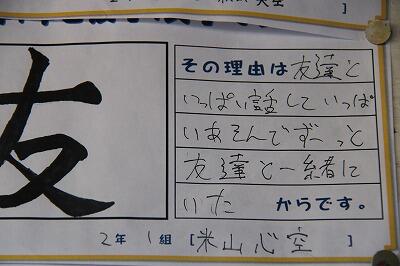 友
その理由は友達と
いっぱい話していっぱ
いあそんでずーっと
友達と一緒に
いた からです。
2年 1組 [米山心空 ]